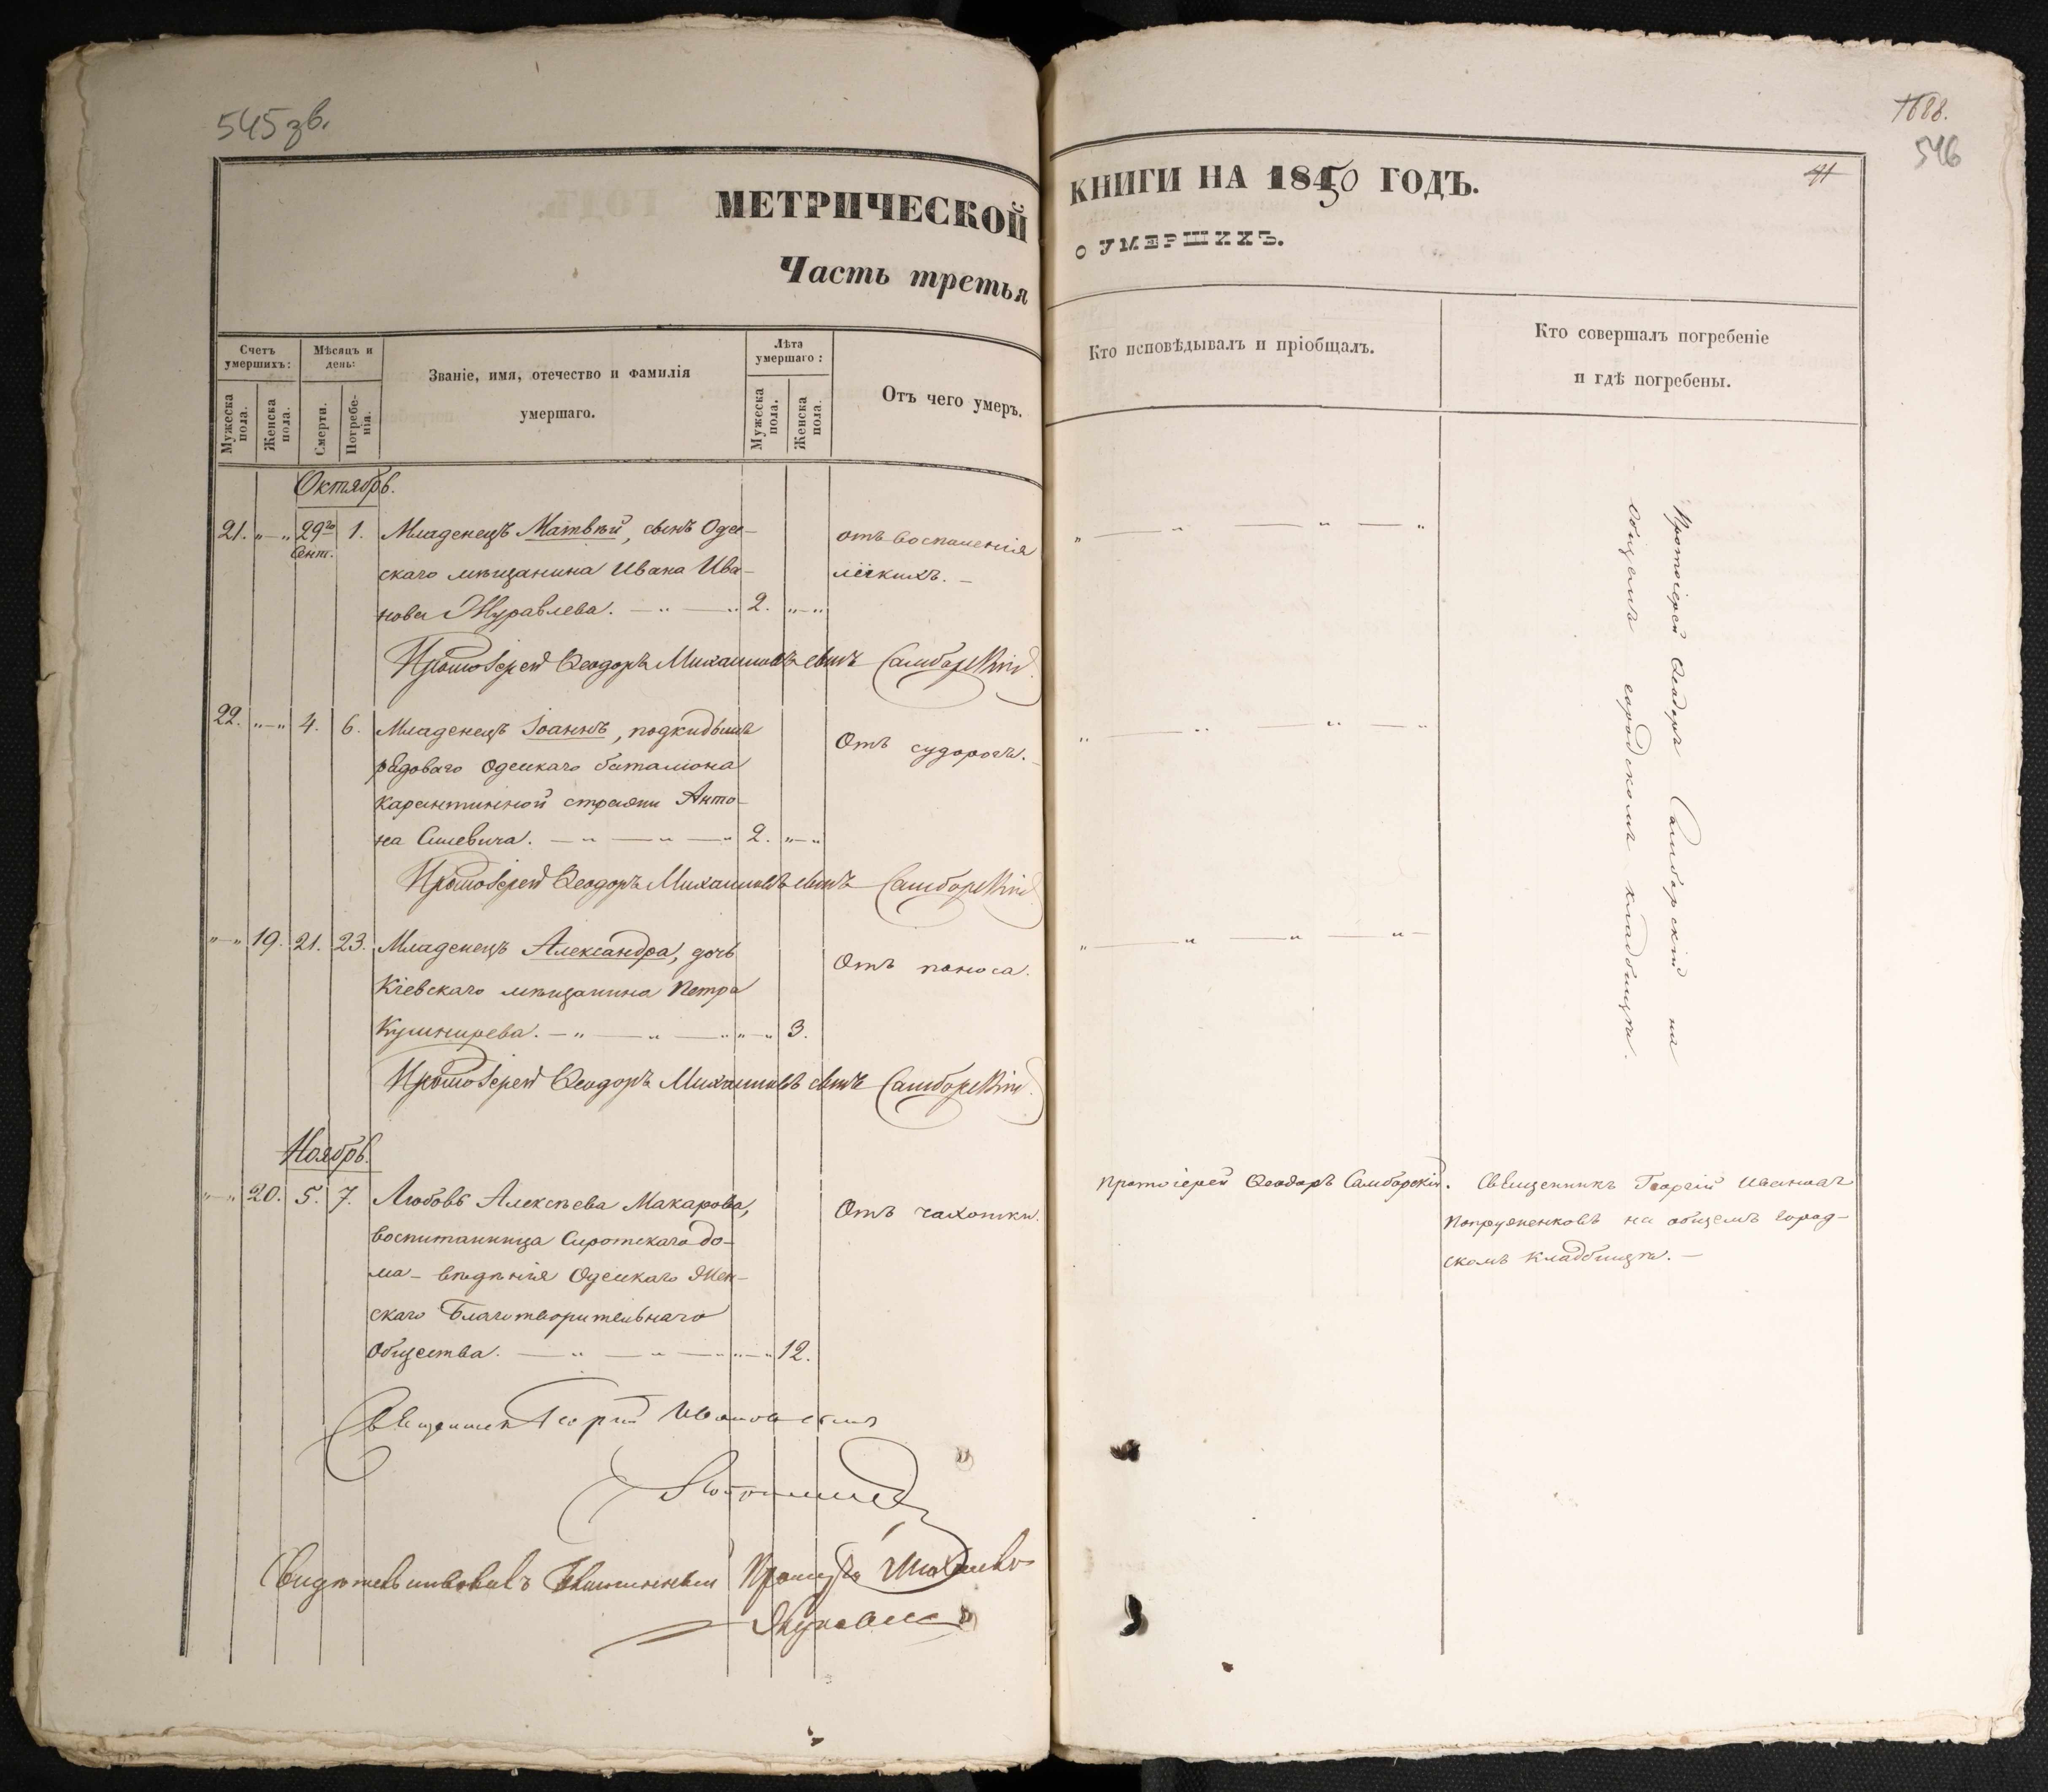 545 зв.
МЕТРИЧЕСКОЙ
Часть третья
Счетъ умершихъ:
Мѣсяцъ и день:
Званіе, имя, отечество и фамилія умершаго.
Лѣта умершаго:
Отъ чего умеръ.
Мужеска пола.
Женска пола.
Смерти.
Погребенія.
Мужеска пола.
Женска пола.
Октябрь.
21. „—„ 29го Сент. 1. Младенецъ Матвѣй, сынъ Одес- отъ воспаленія
скаго мѣщанина Ивана Ива- лёгкихъ. —
нова Журавлева. — „ — „ 2. „—„
Протоіерей Ѳеодоръ Михайловъ сынъ Самборскій
22. „—„ 4. 6. Младенецъ Іоаннъ, подкидышъ Отъ судорогъ. —
рядоваго Одесскаго баталіона
карантинной стражи Анто-
на Силевича. — „ — „ — „ 2. „—„
Протоіерей Ѳеодоръ Михайловъ сынъ Самборскій
„—„ 19. 21. 23. Младенецъ Александра, дочь Отъ поноса.
Кіевскаго мѣщанина Петра
Кушнирева. — „ — „ — „ „—„ 3.
Протоіерей Ѳеодоръ Михайловъ сынъ Самборскій
Ноябрь.
„—„ 20. 5. 7. Любовь Алексѣева Макарова, Отъ чахотки.
воспитанница Сиротскаго до-
ма — вѣдѣнія Одесскаго Жен-
скаго Благотворительнаго
Общества. — „ — „ — „ „—„ 12.
Священникъ Георгій Ивановъ сынъ
Свидѣтельствовалъ
1688.
546
91
КНИГИ НА 1850 ГОДЪ.
О УМЕРШИХЪ.
Кто исповѣдывалъ и пріобщалъ.
Кто совершалъ погребеніе
и гдѣ погребены.
„ — „ — „ — „
„ — „ — „ — „
„ — „ — „ —
Протоіерей Ѳеодоръ Самборскій на
общемъ городскомъ кладбищѣ.
Протоіерей Ѳеодоръ Самборскій.
Священникъ Георгій Ивановъ
Попруженковъ на общемъ город-
скомъ кладбищѣ. —